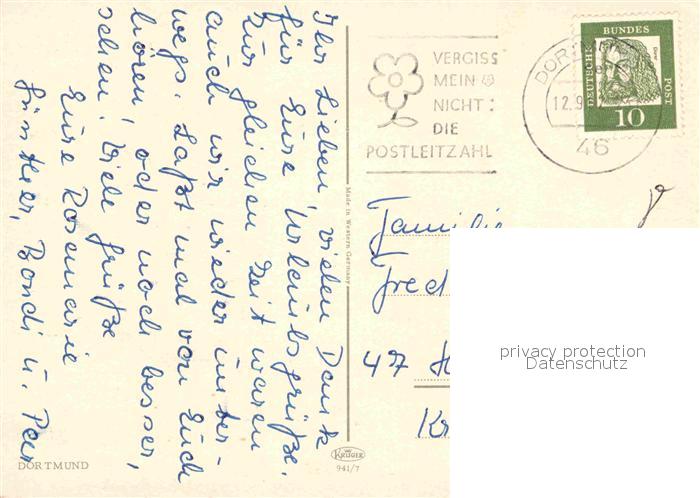 Ihr Lieben, vielen Dank
für Eure Urlaubsgrüße.
Zur gleichen Zeit waren
auch wir wieder unter-
wegs. Laßt mal von Euch
hören, oder noch besser,
sehen! Viele Grüße
Eure Rosemarie
Günther, Bondi u. Peer
DORTMUND
Made in Western Germany
KRÜGER
941/7
VERGISS
MEIN
NICHT:
DIE
POSTLEITZAHL
DORTMUND
12.9
46
DEUTSCHE
BUNDES
POST
10
Familie
Fred
47
privacy protection
Datenschutz